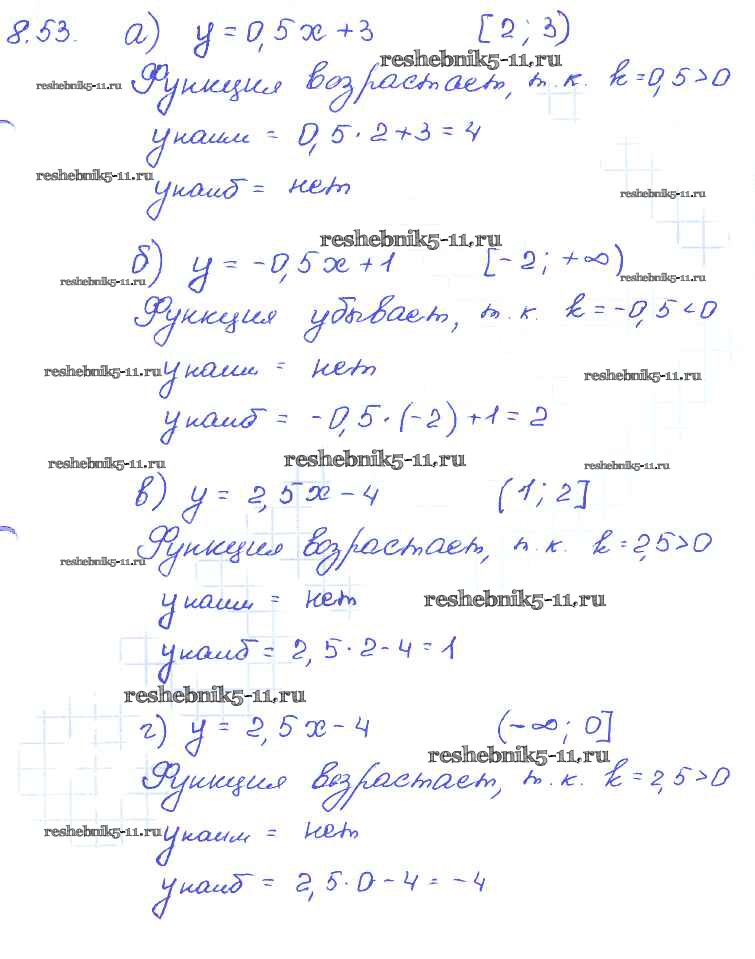 8.53. а) y = 0,5x + 3 [2; 3)
reshebnik5-11.ru
reshebnik5-11.ru Функция возрастает, т.к. k = 0,5 > 0
yнаим = 0,5 · 2 + 3 = 4
reshebnik5-11.ru
yнаиб = нет reshebnik5-11.ru
reshebnik5-11.ru
б) y = -0,5x + 1 [-2; +∞)
reshebnik5-11.ru reshebnik5-11.ru
Функция убывает, т.к. k = -0,5 < 0
reshebnik5-11.ru yнаим = нет reshebnik5-11.ru
yнаиб = -0,5 · (-2) + 1 = 2
reshebnik5-11.ru reshebnik5-11.ru reshebnik5-11.ru
в) y = 2,5x - 4 (1; 2]
Функция возрастает, т.к. k = 2,5 > 0
reshebnik5-11.ru
yнаим = нет reshebnik5-11.ru
yнаиб = 2,5 · 2 - 4 = 1
reshebnik5-11.ru
г) y = 2,5x - 4 (-∞; 0]
reshebnik5-11.ru
Функция возрастает, т.к. k = 2,5 > 0
reshebnik5-11.ru yнаим = нет
yнаиб = 2,5 · 0 - 4 = -4